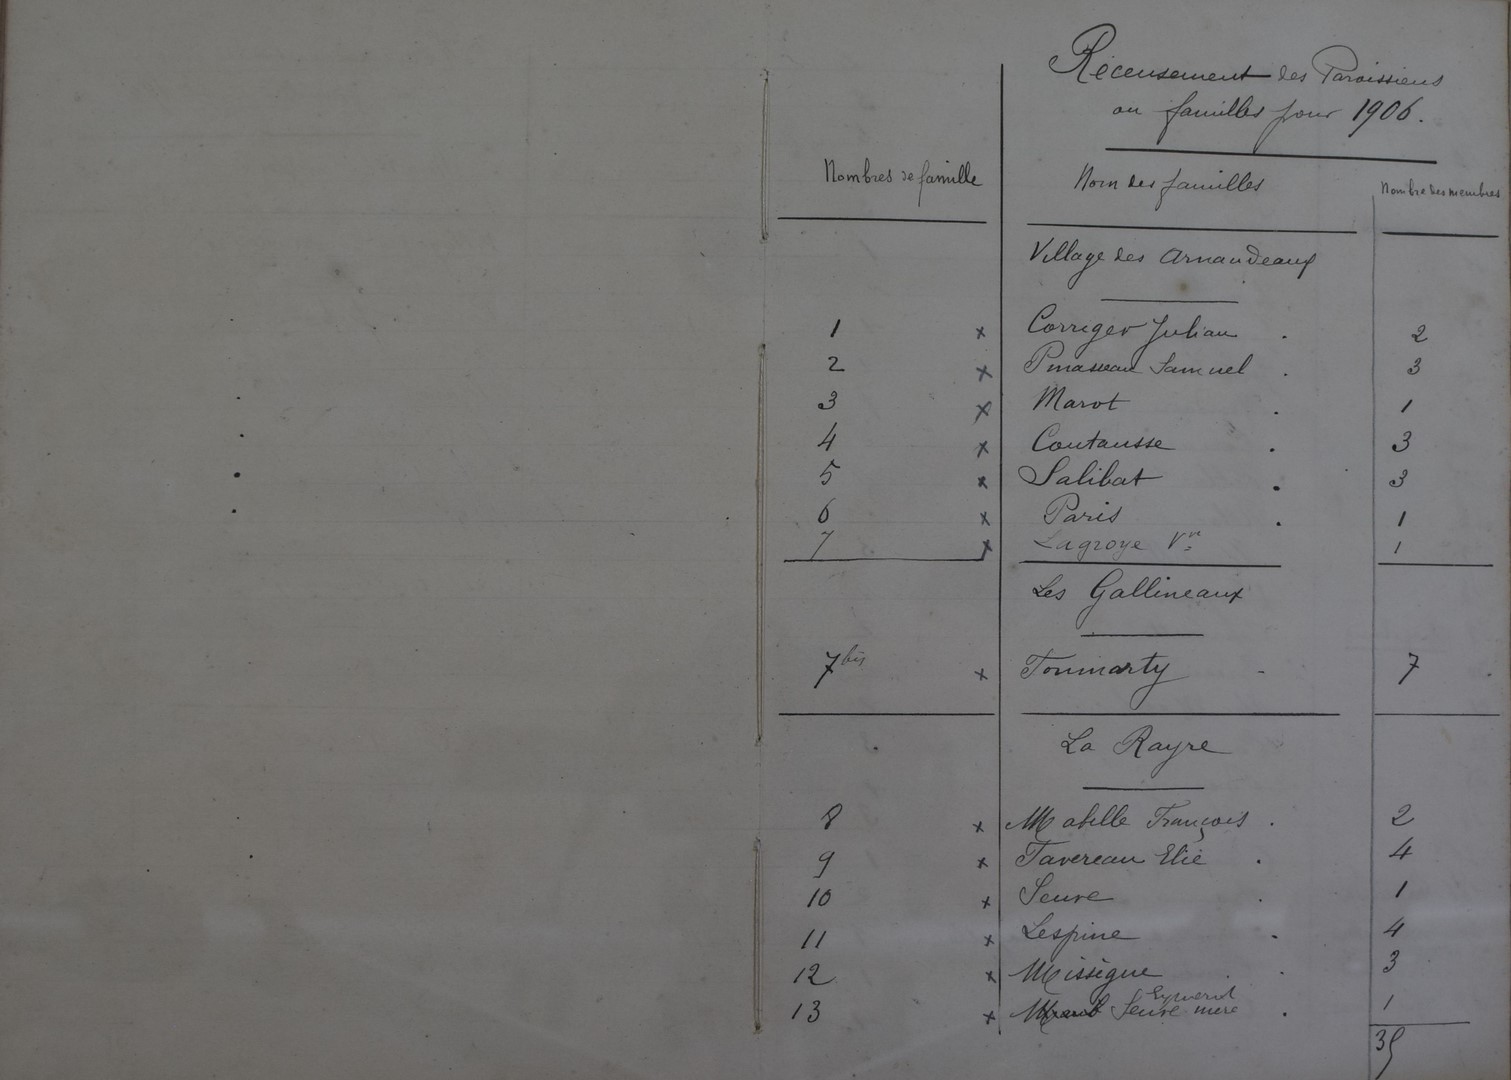 Récensement des Paroissiens
ou familles pour 1906.
Nombres de famille Nom des familles Nombre des membres
Village des Arnaudeaux
1 x Corriger Julian . 2
2 x Pinasseau Samuel . 3
3 x Marot . 1
4 x Coutausse . 3
5 x Salibat . 3
6 x Paris . 1
7 x Lagroye Vve 1
Les Gallineaux
7 bis x Tonimarty - 7
La Rayre
8 x Mabille François . 2
9 x Tavereau Elie . 4
10 x Seure . 1
11 x Lespine . 4
12 x Missègue . 3
13 x Seure mère . 1
35